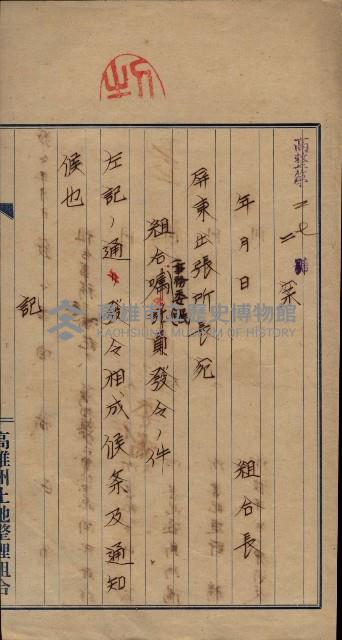 高整第二七
二號 案
年月日
組合長
屏東出張所長宛
組合囑託員發令ノ件
事務委囑
左記ノ通發令相成候条及通知
候也
記
高雄州土地整理組合
高雄市立歷史博物館
KAOHSIUNG MUSEUM OF HISTORY